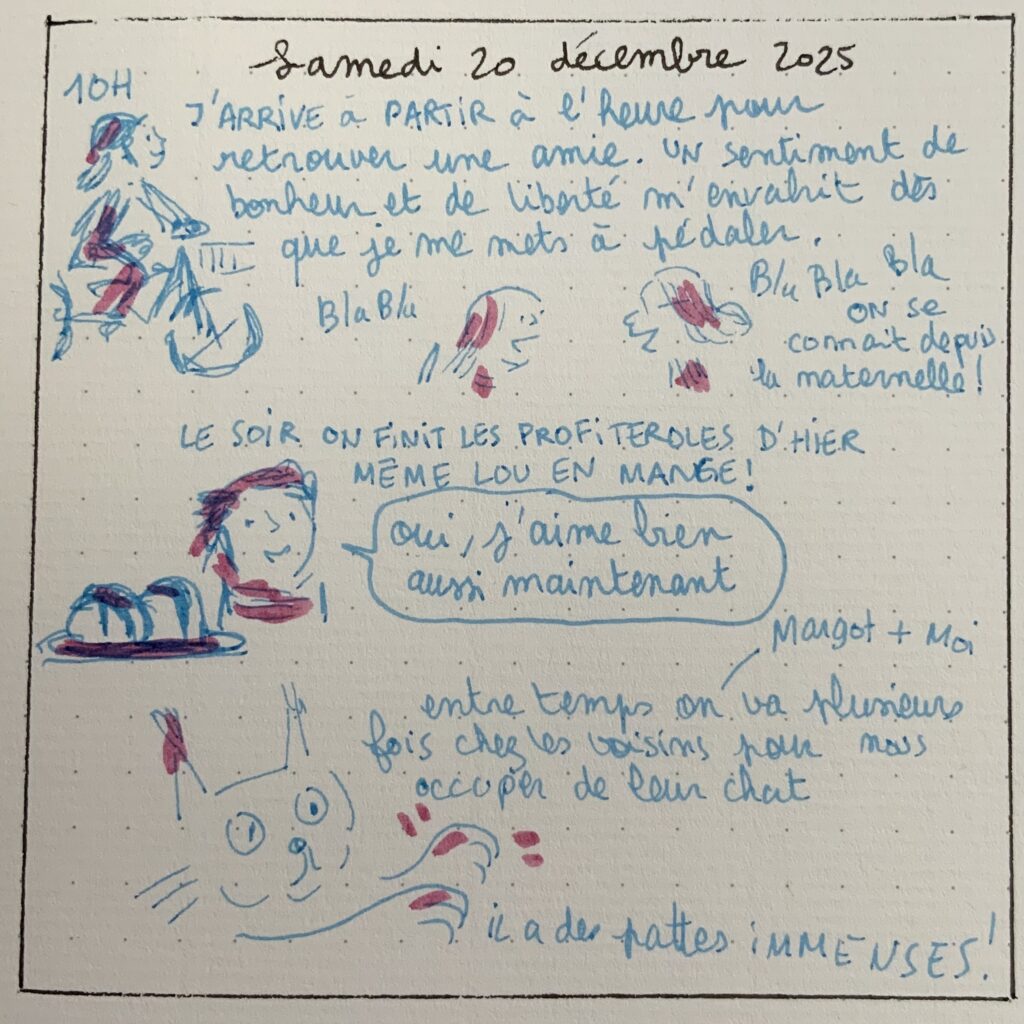 Samedi 20 décembre 2025
10H
J'ARRIVE à PARTIR à l'heure pour
retrouver une amie. UN sentiment de
bonheur et de liberté m'envahit dès
que je me mets à pédaler.
Bla Bla
Bla Bla Bla
ON se
connait depuis
la maternelle !
LE SOIR ON FINIT LES PROFITEROLES D'HIER
MÊME LOU EN MANGE !
oui, j'aime bien
aussi maintenant
Margot + Moi
entre temps on va plusieurs
fois chez les voisins pour nous
occuper de leur chat
il a des pattes iMMENSES !